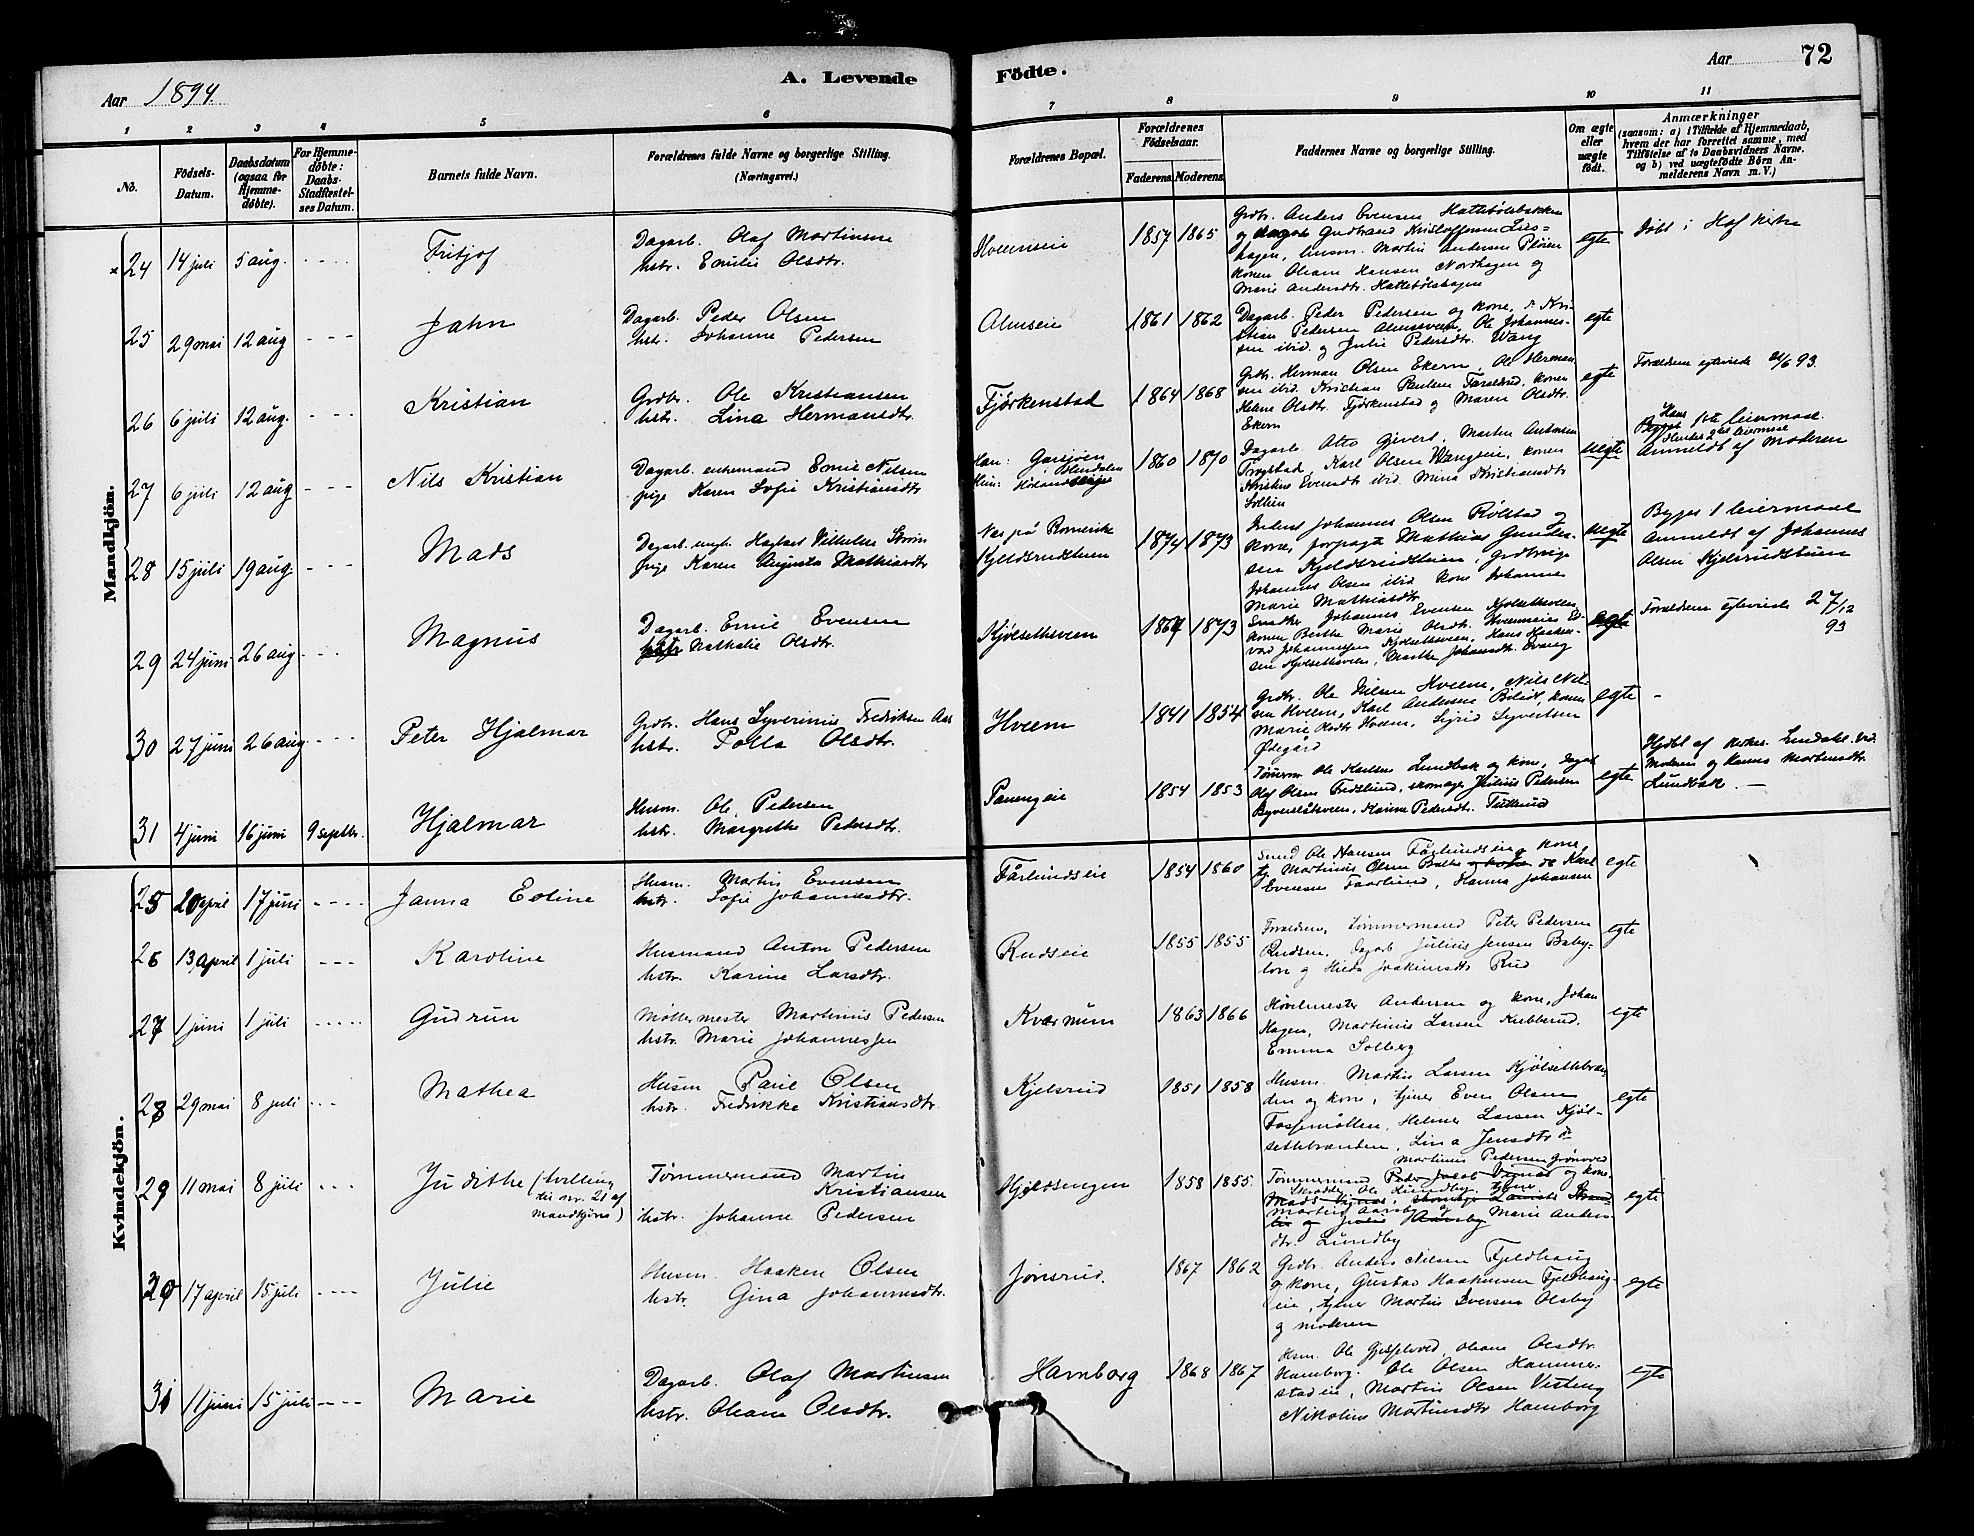 Aar 1894.
A. Levende
Födte.
Aar
72
1 2 3 4 5 6 7 8 9 10 11
No.
Födsels-Datum.
Daabsdatum (ogsaa for Hjemme-döbte).
For Hjemme-döbte: Daabs-Stadfæstel-ses Datum.
Barnets fulde Navn.
Forældrenes fulde Navne og borgerlige Stilling.
(Næringsvei.)
Forældrenes Bopæl.
Forældrenes Födselsaar.
Faderens. Moderens.
Faddernes Navne og borgerlige Stilling.
Om ægte eller uægte födt.
Anmærkninger
(saasom: a) i Tilfælde af Hjemmedaab, hvem der har forrettet samme, med Tilföielse af to Daabsvidners Navne, og b) ved uægtefödte Börn Anmelderens Navn m. V.)
Mandkjön.
× 24 14 juli 5 aug. Fritjof
Dagarb. Olaf Martinsen
hstr. Emilie Olsdtr.
Hveemseie 1857 1865
Grdbr. Anders Evensen Hattebölsbakken
og Gudbrand Kristoffersen
hagen, Martin Andersen
konen Oleane Hansen Nordhagen og
Marie Andersdtr. Hattebölshagen
egte
döbt i Hof kirke
25 29 mai 12 aug Jahn
Dagarb. Peder Olsen
hstr. Johanne Pedersen
Almseie 1861 1862
Dagarb. Peder Pedersen og kone, Kri-
stian Pedersen Almseveen, Ole Johannes-
sen ibid. og Julie Pedersdtr. Wang
egte
26 6 juli 12 aug. Kristian
Grdbr. Ole Kristiansen
hstr. Lina Hermansdtr.
Fjörkenstad 1864 1868
Grdbr. Herman Olsen Ekern, Ole Herman-
sen ibid. Kristian Paulsen konen
Helene Olsdtr. Fjörkenstad og Maren Olsdtr.
Ekern
egte
Forældrene egteviede 21/6 93.
27 6 juli 12 aug Nils Kristian
Dagarb. enkemand Emil Nilsen
pige Karen Sofie Kristiansdtr
Han: Garsjöen
Hun:
1860 1870
Dagarb. Otto Gjevert, Marten Antonsen
Trogstad, Karl Olsen Wangseie, konen
Kristine Evensdtr ibid. Mina Kristiansdtr
Sollien
uegte
Hans 1ste leiermaal
Hendes 2det leiermaal
Anmeldt af moderen
28 15 juli 19 aug. Mads
Dagarb. ungk. Hagbart Vilhelm
pige Karen Augusta Mathiasdtr
Nes på Romerike
Kjeldsrudstuen
1874 1873
Inderst Johannes Olsen Rölstad og
kone, forpagt. Mathias Gunder-
sen Kjeldsrudstuen, Grdbr.
Johannes Olsen ibid kone Johanne
Marie Mathiasdtr
uegte
Begges 1 leiermaal
anmeldt af Johannes
Olsen Kjelsrudstuen
29 24 juni 26 aug. Magnus
Dagarb. Emil Evensen
hstr Nathalie Olsdtr.
Kjölsethveen 1869 1873
Smedkr Johannes Evensen Kjölsethveen
konen Berthe Marie Olsdtr. Ed-
vard Johannessen Kjölsethsveen, Hans Haaken-
sen Kjölsethsveen, Marthe Johansdtr.
egte
Forældrene egteviede 27/12 93
30 27 juni 26 aug. Peter Hjalmar
Grdbr. Hans Syverinus Fredriksen Aas
hstr. Polla Olsdtr.
Hveem 1841 1854
Grdbr. Ole Nilsen Hveem, Nils Nil-
sen Hveem, Karl Andersen Bilidt, konen
Marie Olsdtr Hveem, Sigrid Syvertsen
Ödegård
egte -
31 4 juni 16 juni 9 septbr. Hjalmar
Husm. Ole Pedersen
hstr. Margrethe Pedersdtr.
1854 1853
Tömrm. Ole Karlsen Lundbak og kone, Dagarb.
Olaf Olsen skomager Julius Pedersen
Hanna Pedersdtr.
egte
Hjdbt af kirkes. Lindahl. Vid.
Moderen og Hanna Mortensdtr
Lundbak. —
Kvindekjön.
25 20 april 17 juni Janna Eoline
Husm. Martin Evensen
hstr. Sofie Johannesdtr.
Fårlundseie 1854 1860
Smed Ole Hansen Fårlundseie og kone
tj. Martinus Olsen og Karl
Evensen Faarlund, Hanna Johansen
egte
26 13 april 1 juli Karoline
Husmand Anton Pedersen
hstr. Karine Larsdtr.
Rudseie 1855 1855
Forældrene, Tömmermand Peter Pedersen
Rudseie, Dagarb Julius Jensen Baby-
lon og Hilda Joakimsdtr Rud
egte
27 1 juni 1 juli Gudrun
Möllermester Martinus Pedersen
hstr. Marie Johannessen
Kværnum 1863 1866
Hövelmester Andersen og kone, Johan
Hagen, Martinus Larsen Kubberud,
Emma Solberg
egte
28 29 mai 8 juli Mathea
Husm Paul Olsen
hstr. Fredrikke Kristiansdtr.
Kjelsrud 1851 1858
Husm. Martin Larsen Kjölsethbræn-
den og kone, tjener Even Olsen
Fossemöllen, Helmer Larsen Kjöl-
sethbrænden, Lina Jensdtr do
egte
29 11 mai 8 juli Judithe (tvilling
til nr. 21 af
mandkjön)
Tømmermand Martin
Kristiansen
hstr. Johanne Pedersen
Hjeldsengen 1858 1855
Martinus Pedersen Grönvold
Tömmermand og kone,
Marie Anders-
dtr. Lundby
egte
30 17 april 15 juli Julie
Husm. Haaken Olsen
hstr. Gina Johannesdtr.
Jönsrud 1867 1862
Grdbr. Anders Nilsen Fjeldhaug
og kone, Gustav Haakensen Fjeldhaug-
eie, tjener Martin Iversen Olsby
og moderen
egte
31 11 juni 15 juli Marie
Dagarb. Olaf Martinsen
hstr. Oleane Olsdtr.
Hamborg 1868 1867
Husm. Ole Oleane Olsdtr.
Hamborg. Ole Olsen Hammer-
stadeie, Martin Olsen
Nikoline Martinsdtr Hamborg
egte